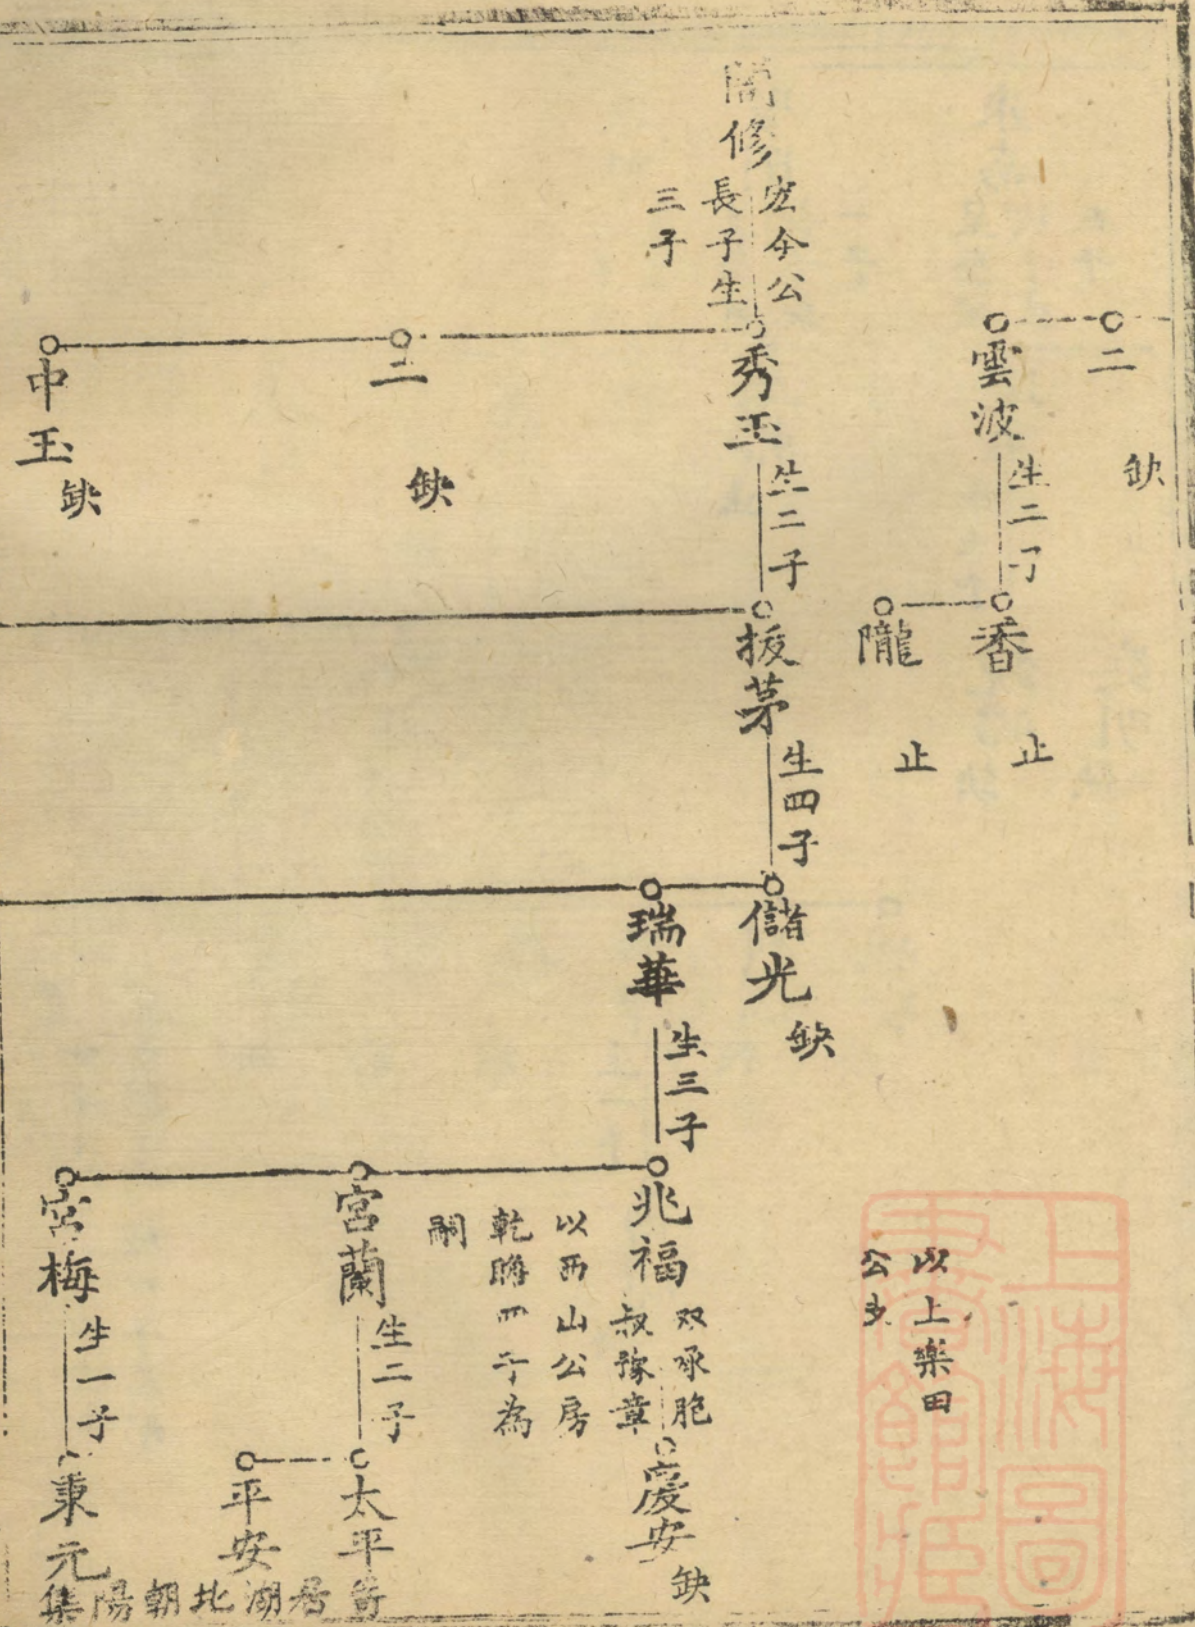 二
缺
雲波
生二子
香
止
隴
止
以上樂田
公支
閣修
宏今公
長子生
三子
秀玉
生二子
二
缺
中玉
缺
拔茅
生四子
儲光
缺
瑞華
生三子
兆福
双承胞
叔豫章
以西山公房
乾暘四子為
嗣
慶安
缺
宮蘭
生二子
太平
平安
宮梅
生一子
秉元
寄居湖北朝陽集
上海圖
書館藏